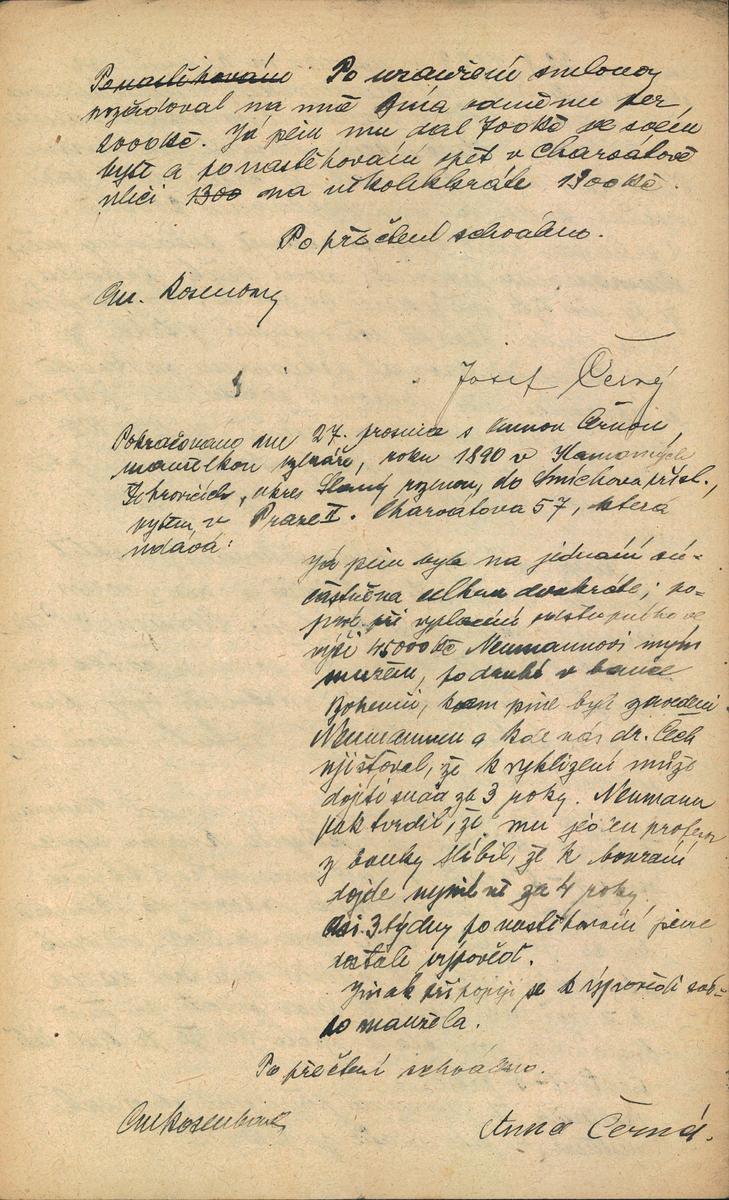 Po nastěhování Po uzavření smlouvy
požadoval na mně Jína odměnu per
2000 Kč. Já jsem mu dal 700 Kč ve svém
bytě a po nastěhování zpět v Charvátově
ulici 1300 na několikkráte 1300 Kč.
Po přečtení schváleno.
Josef Černý
Pokračováno dne 27. prosince s Annou Černou,
manželkou, roku 1890 v Kamenných
Žehrovicích, okres Slaný rozenou, do Smíchova přísl.,
bytem v Praze II. Charvátova 57, která
udává:
Já jsem byla na jednání sú-
častněna celkem dvakráte; po-
prvé při vyplacení odstupného ve
výši 45000 Kč Neumannovi mým
mužem, po druhé v bance
Bohemii, kam jsme byli zavedeni
Neumannem a kde nás dr. Čech
ujišťoval, že k vyklizení může
dojíti snad za 3 roky. Neumann
pak tvrdil, že mu jeden profesor
z banky slíbil, že k bourání
dojde nejméně za 4 roky
asi 3 týdny po nastěhování jsme
dostali výpověď.
Jinak připojuji se k výpovědi své-
ho manžela.
Po přečtení schváleno.
Anna Černá.